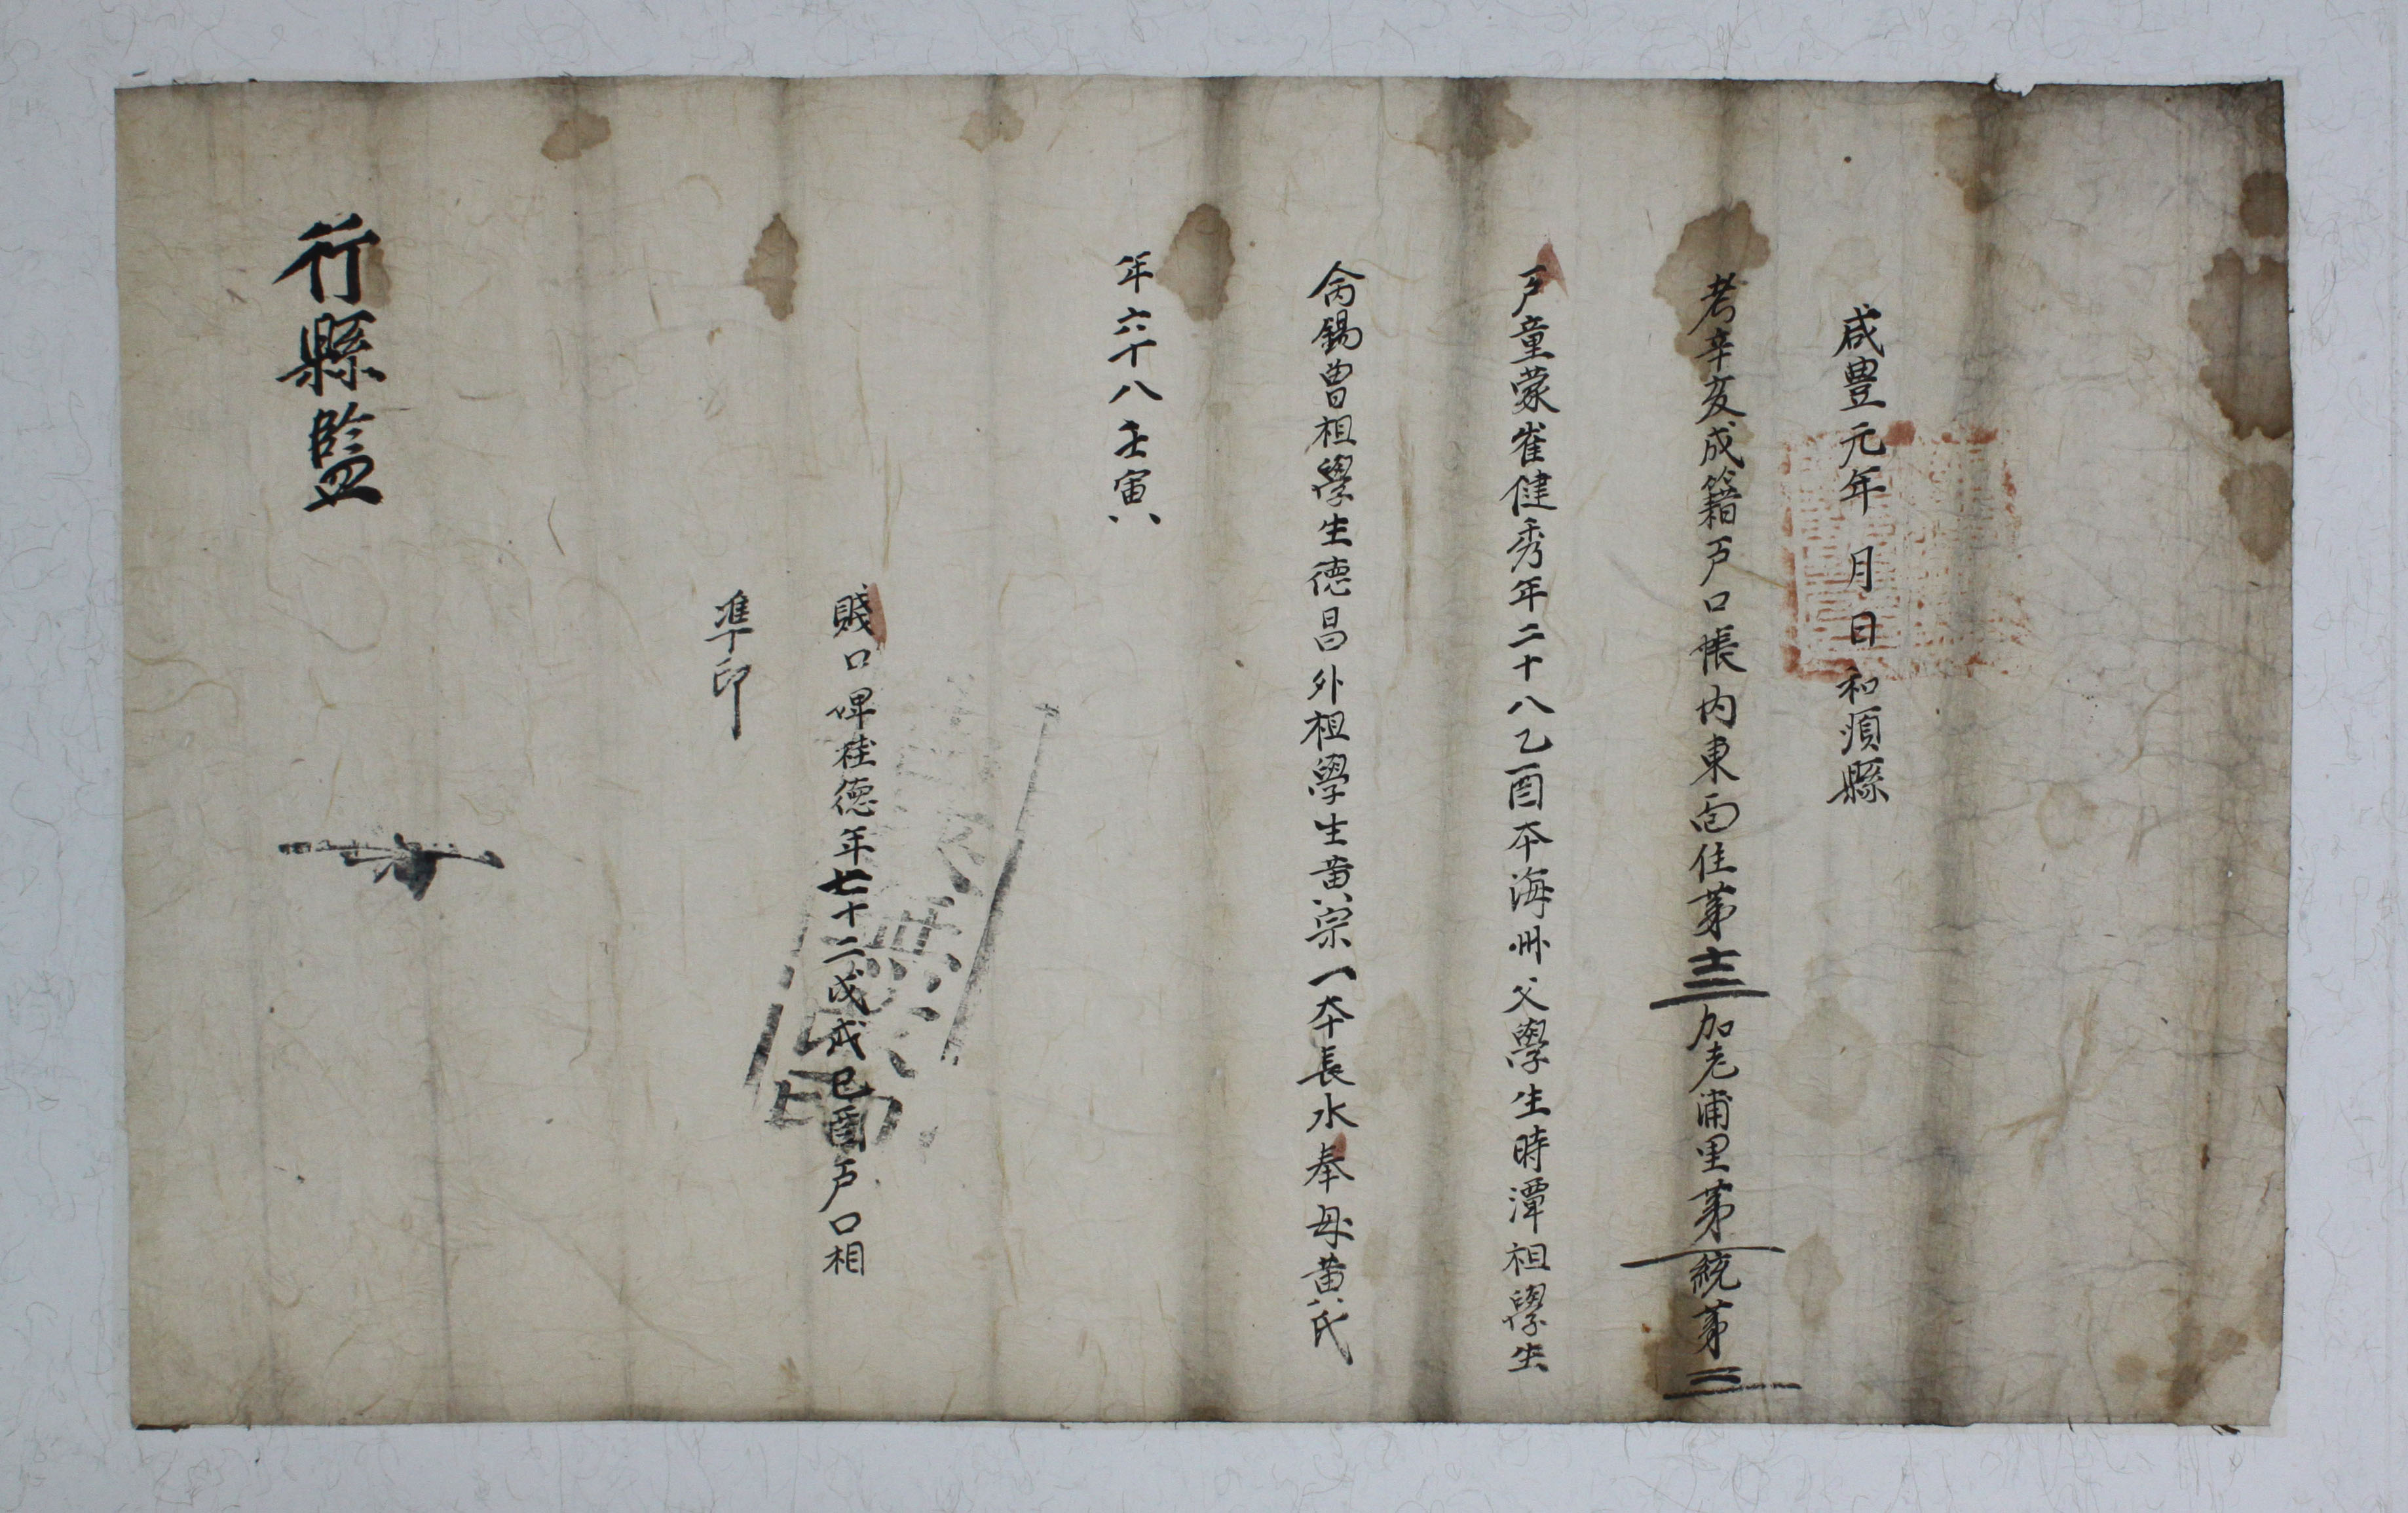 咸豊元年 月 日 和順縣
考辛亥成籍戶口帳內東面住第十三加老浦里第一統第三
戶童蒙崔健秀年二十八乙酉本海州父學生時潭祖學生
禼錫曾祖學生德昌外祖學生黃宗一本長水奉母黃氏
年六十八壬寅
賤口婢桂德年七十二戊戌己酉戶口相
準印
行縣監